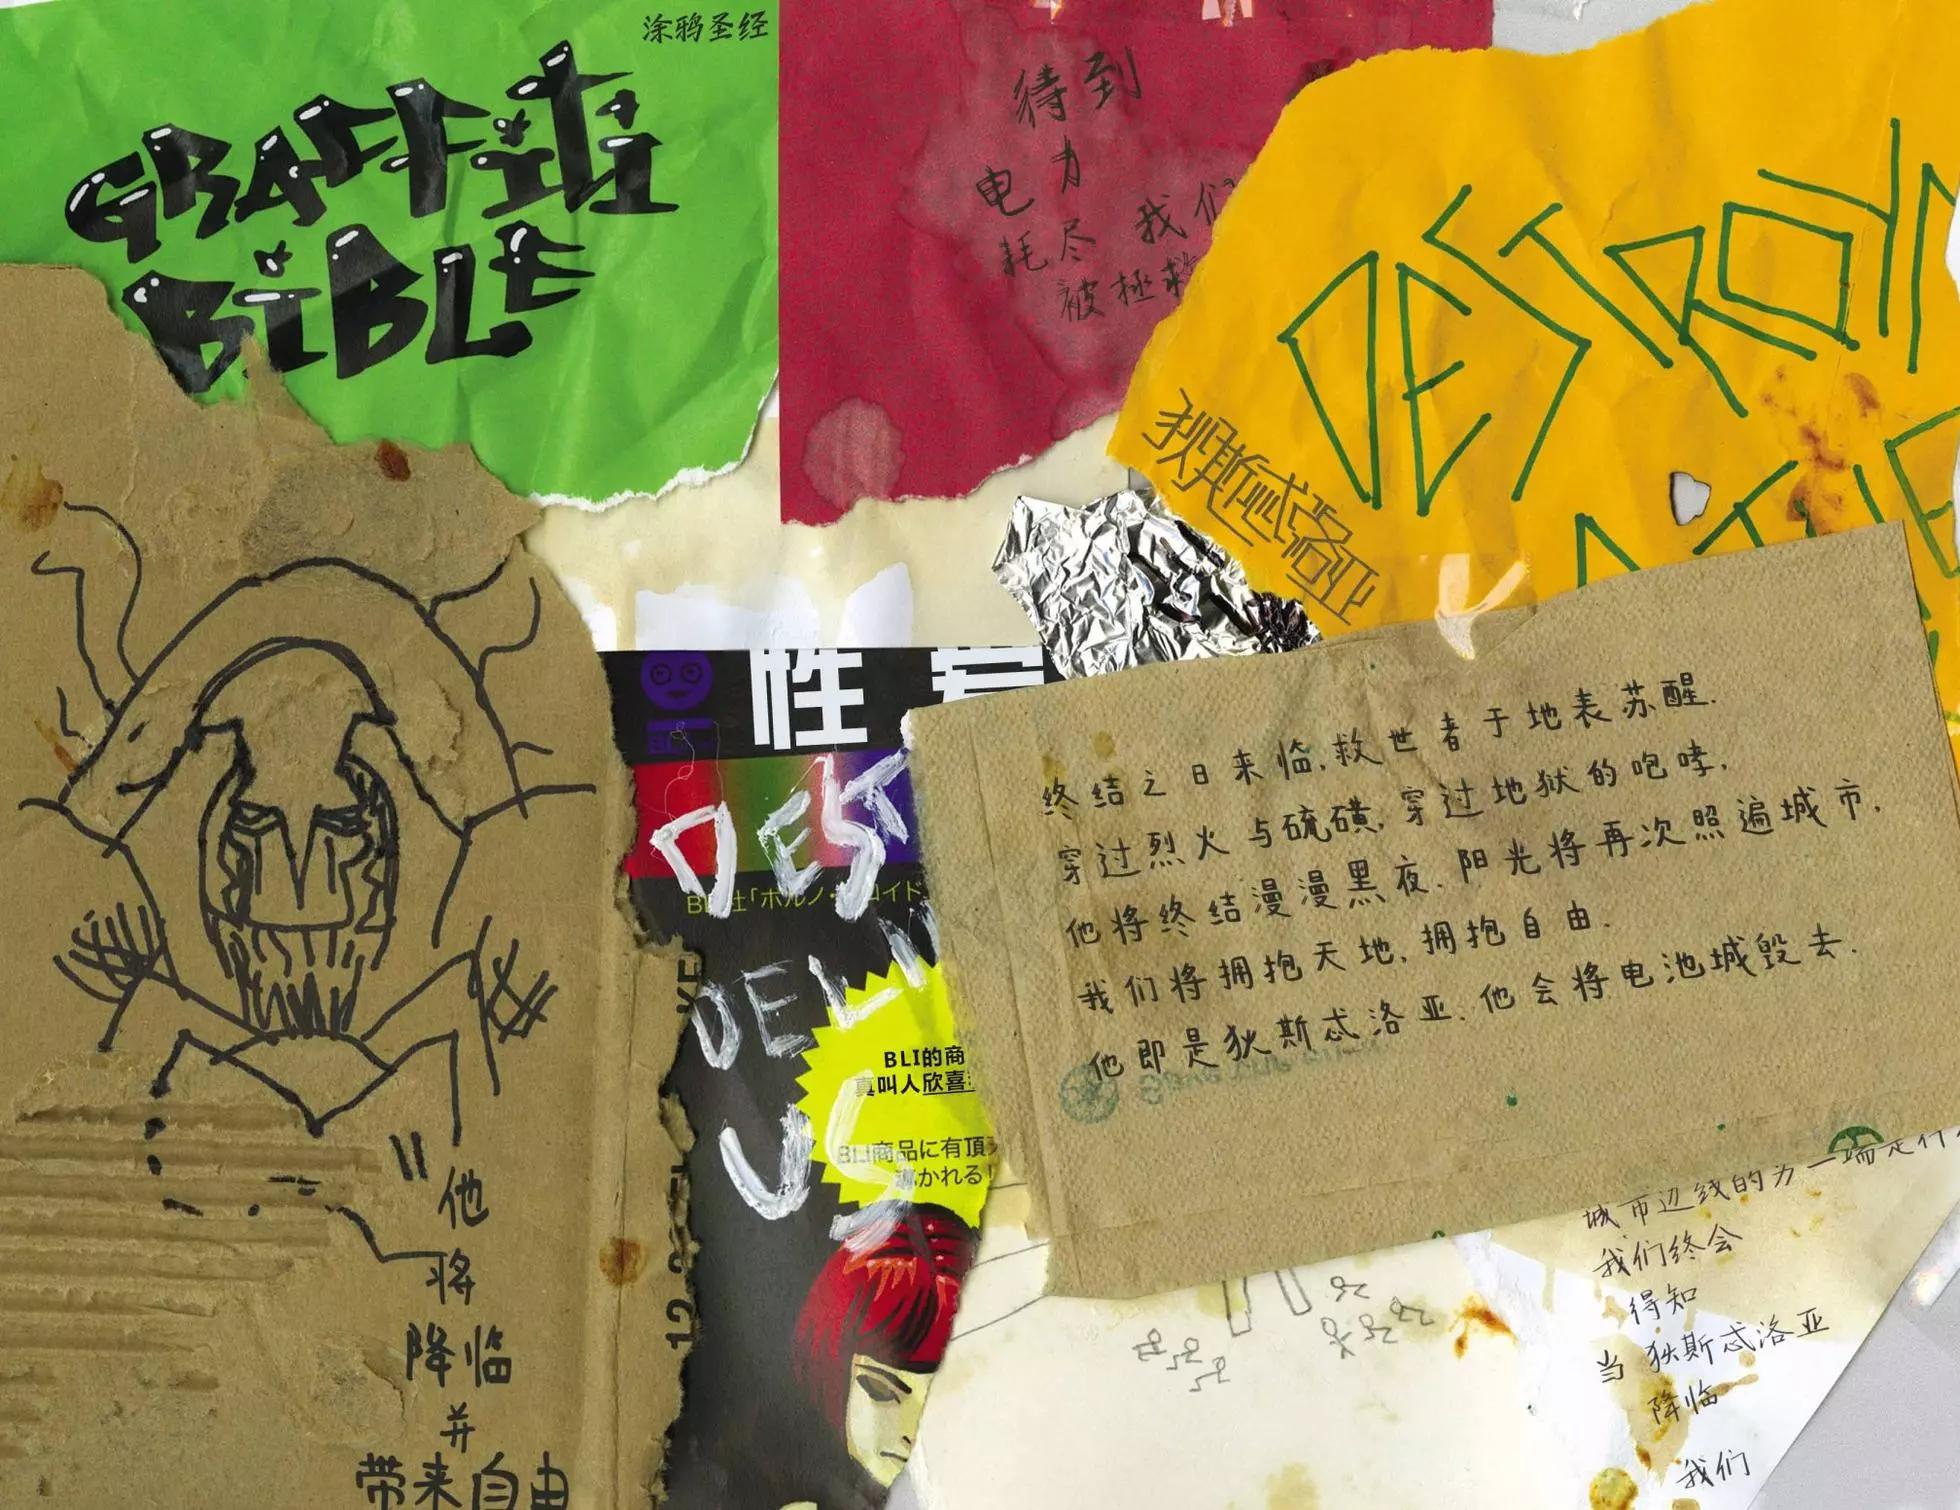 涂鸦圣经
GRAFFITI
BIBLE
待到
电力
耗尽 我们
被拯救
DESTROY
狄斯忒洛亚
性
DEST
DEL
US
BLI的商
真叫人欣喜
BLI商品に有頂
導かれる!
终结之日来临,救世者于地表苏醒.
穿过烈火与硫磺,穿过地狱的咆哮,
他将终结漫漫黑夜.阳光将再次照遍城市,
我们将拥抱天地,拥抱自由.
他即是狄斯忒洛亚.他会将电池城毁去.
"他
将
降临
并
带来自由
城市边线的另一端是什
我们终会
得知
当 狄斯忒洛亚
降临
我们